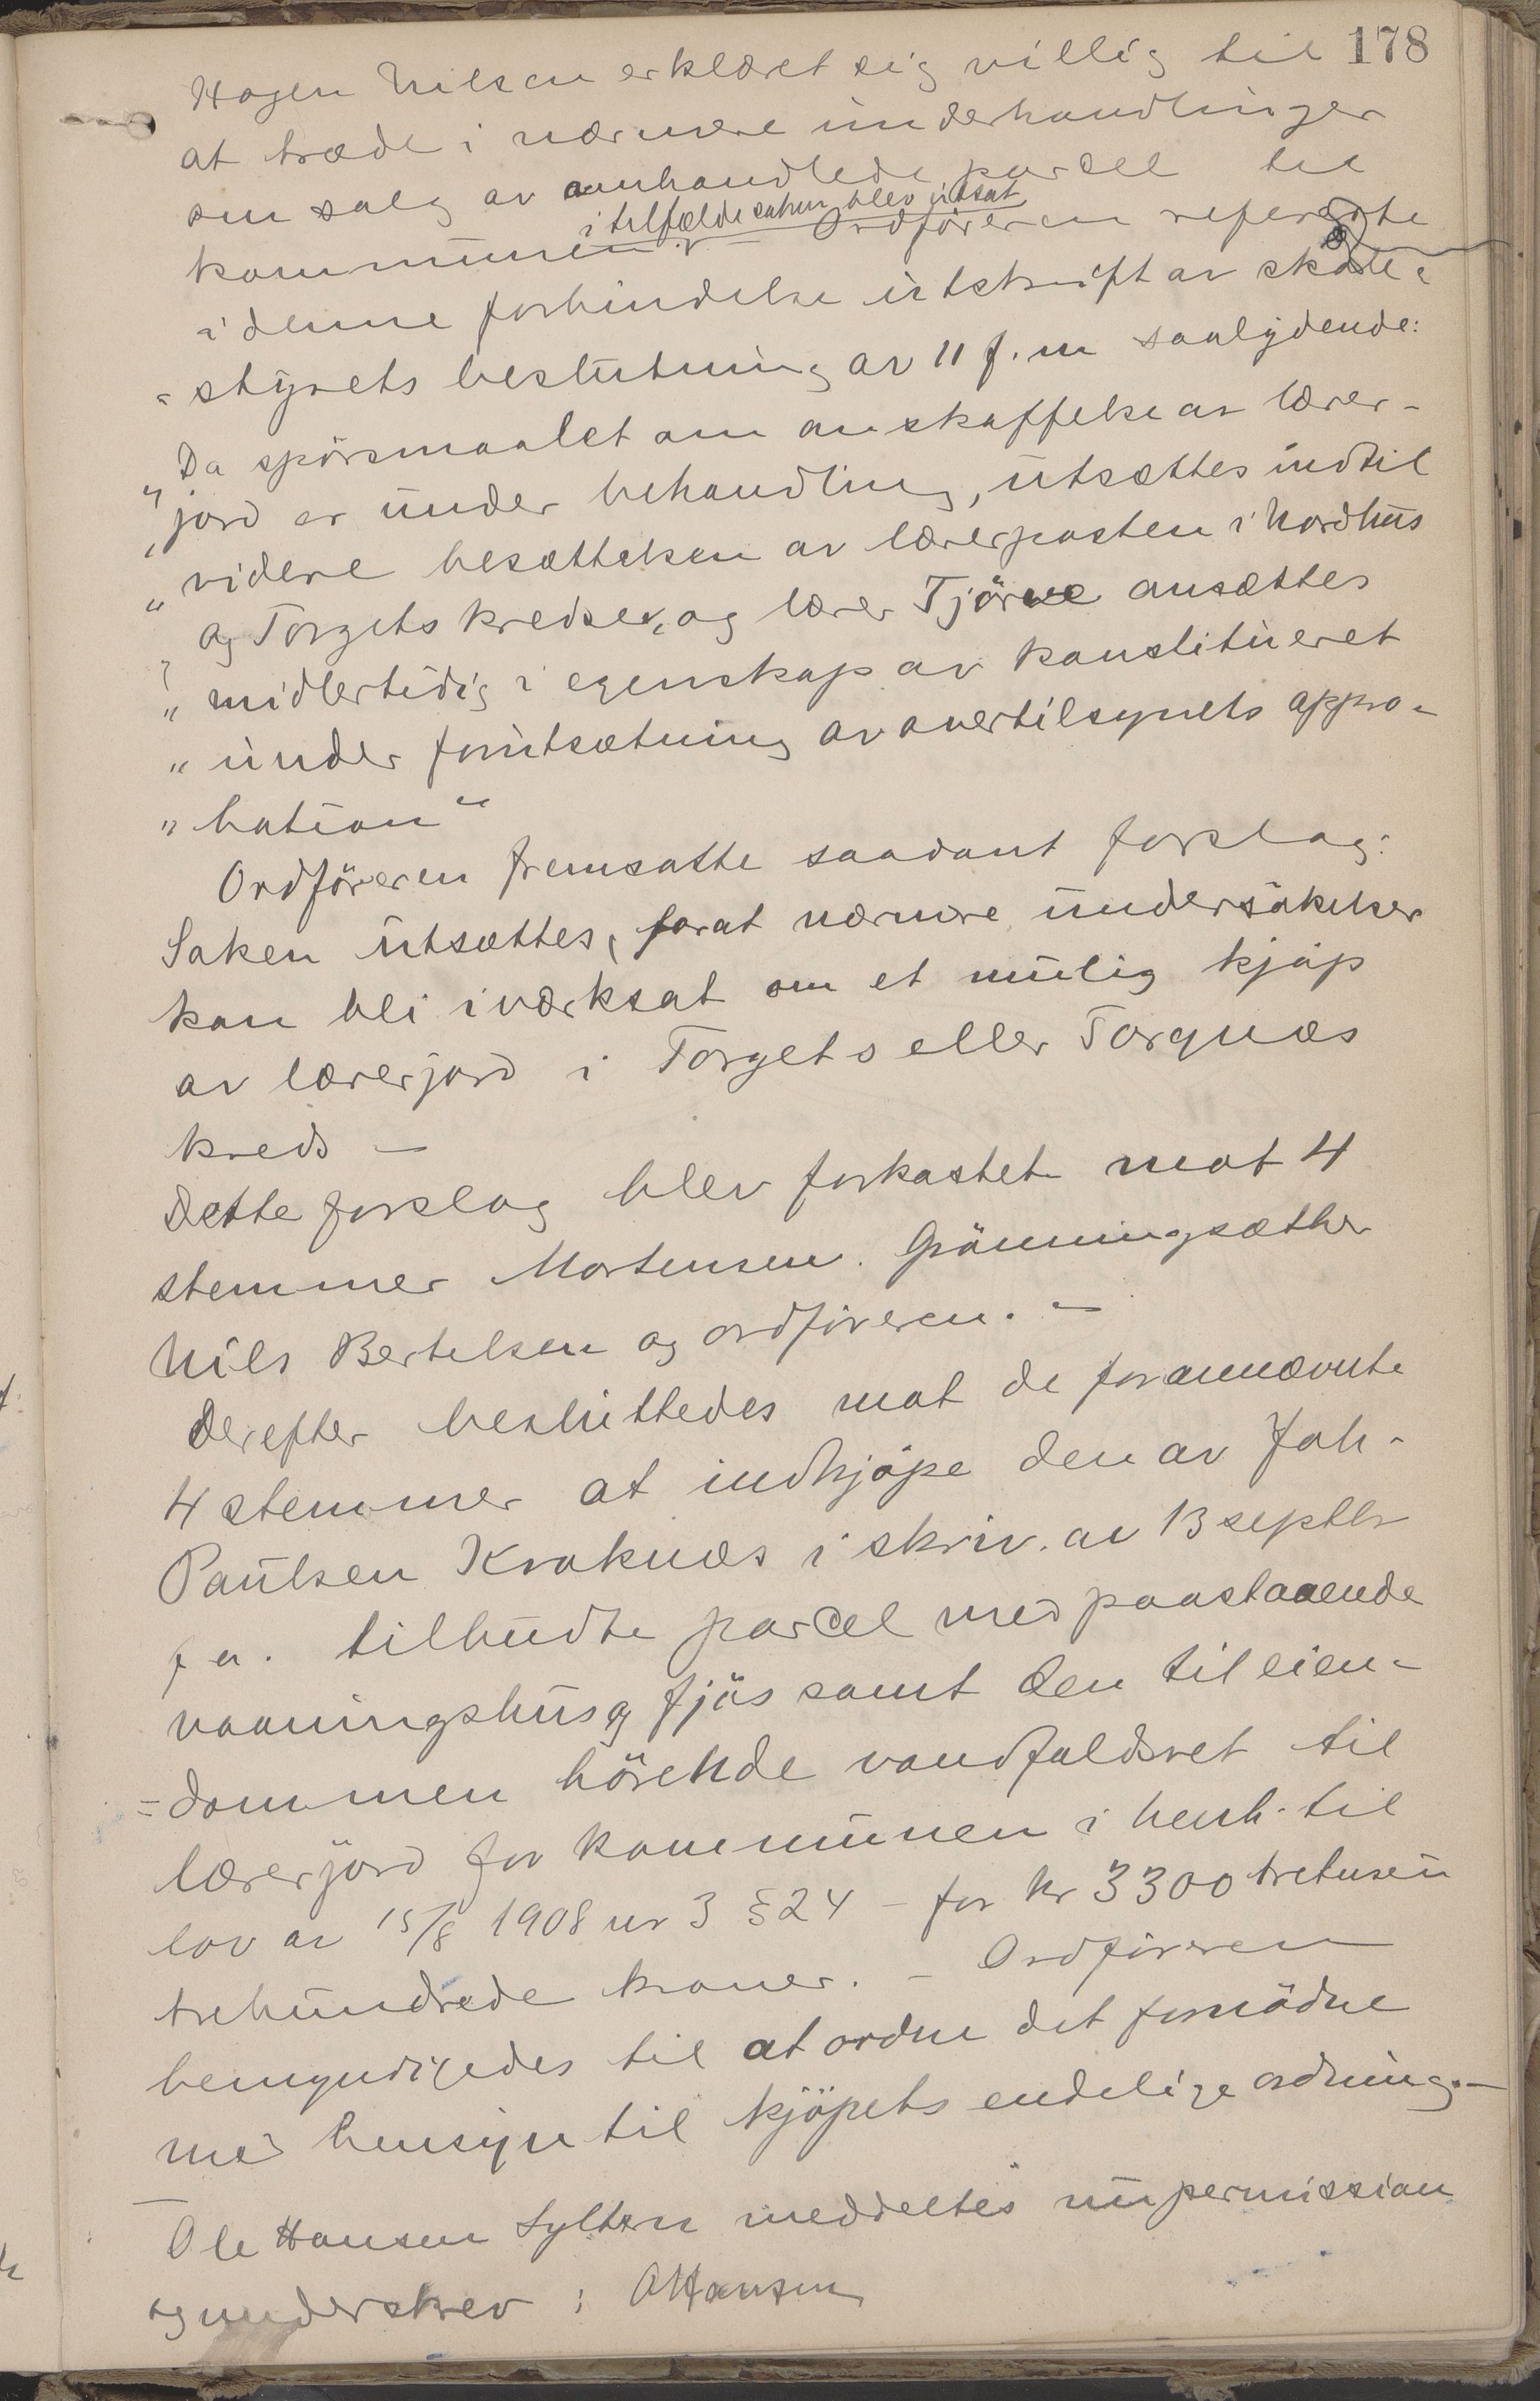 178
Hagen Nilsen erklæret sig villig til
at træde i nærmere underhandlinger
om salg av omhandlede parcel til
i tilfælde saken blev utsat
kommunen. — Ordföreren refererte
i denne forbindelse utskrift av skole-
-styrets beslutning av 11 f.m saalydende:
„Da spörsmaalet om anskaffelse av lærer-
„jord er under behandling, utsættes indtil
„videre besættelsen av lærerposten i Nordhus
„og Torgets kredser, og lærer Tjörve ansættes
„midlertidig i egenskap av konstitueret
„under forutsætning av overtilsynets appro-
„bation“
Ordföreren fremsatte saadant forslag:
Saken utsættes, forat nærmere undersökelser
kan bli iværksat om et mulig kjöp
av lærerjord i Torgets eller Torgnæs
kreds —
Dette forslag blev forkastet mot 4
stemmer Mortensen. Grönningsæther
Nils Bertelsen og ordföreren. —
Derefter besluttedes mot de forannævnte
4 stemmer at indkjöpe den av Joh.
Paulsen Kraknæs i skriv. av 13 septbr
f a. tilbudte parcel med paastaaende
vaaningshus og fjös samt den til eien-
=dommen hörende vandfaldsret til
lærerjord for kommunen i henh. til
lov av 15/8 1908 nr 3 § 24 – for kr 3300 tretusen
trehundrede kroner. – Ordföreren
bemyndigedes til at ordne det fornödne
med hensyn til kjöpets endelige ordning. —
Ole Hansen Sylten meddeltes nu permission
og underskrev: OHansen